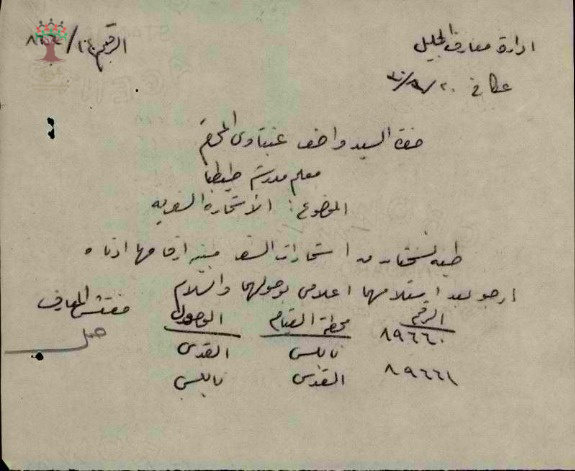 ادارة معارف الجليل
الرقم ١٠/٨٦٦
عكا في ٢٠/٩/٣٠
حضرة السيد واصف عنبتاوي المحترم
معلم مدرسة طيطبا
الموضوع: الاستمارة السفرية
طيه نسختان من استمارات السفر مبينه ارقامها ادناه
ارجو بعد استلامهما اعلامي بوصولهما والسلام
مفتش المعارف
الرقم محطة القيام الوصول
٨٩٦٦٠ نابلس القدس
٨٩٦٦١ القدس نابلس